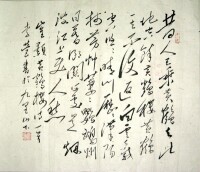 昔人已乘黄鹤去此
地空余黄鹤楼黄鹤
一去不复返白云千载
空悠悠晴川历历汉阳
树芳草萋萋鹦鹉洲
日暮乡关何处是烟
波江上使人愁
崔颢黄鹤楼诗一首